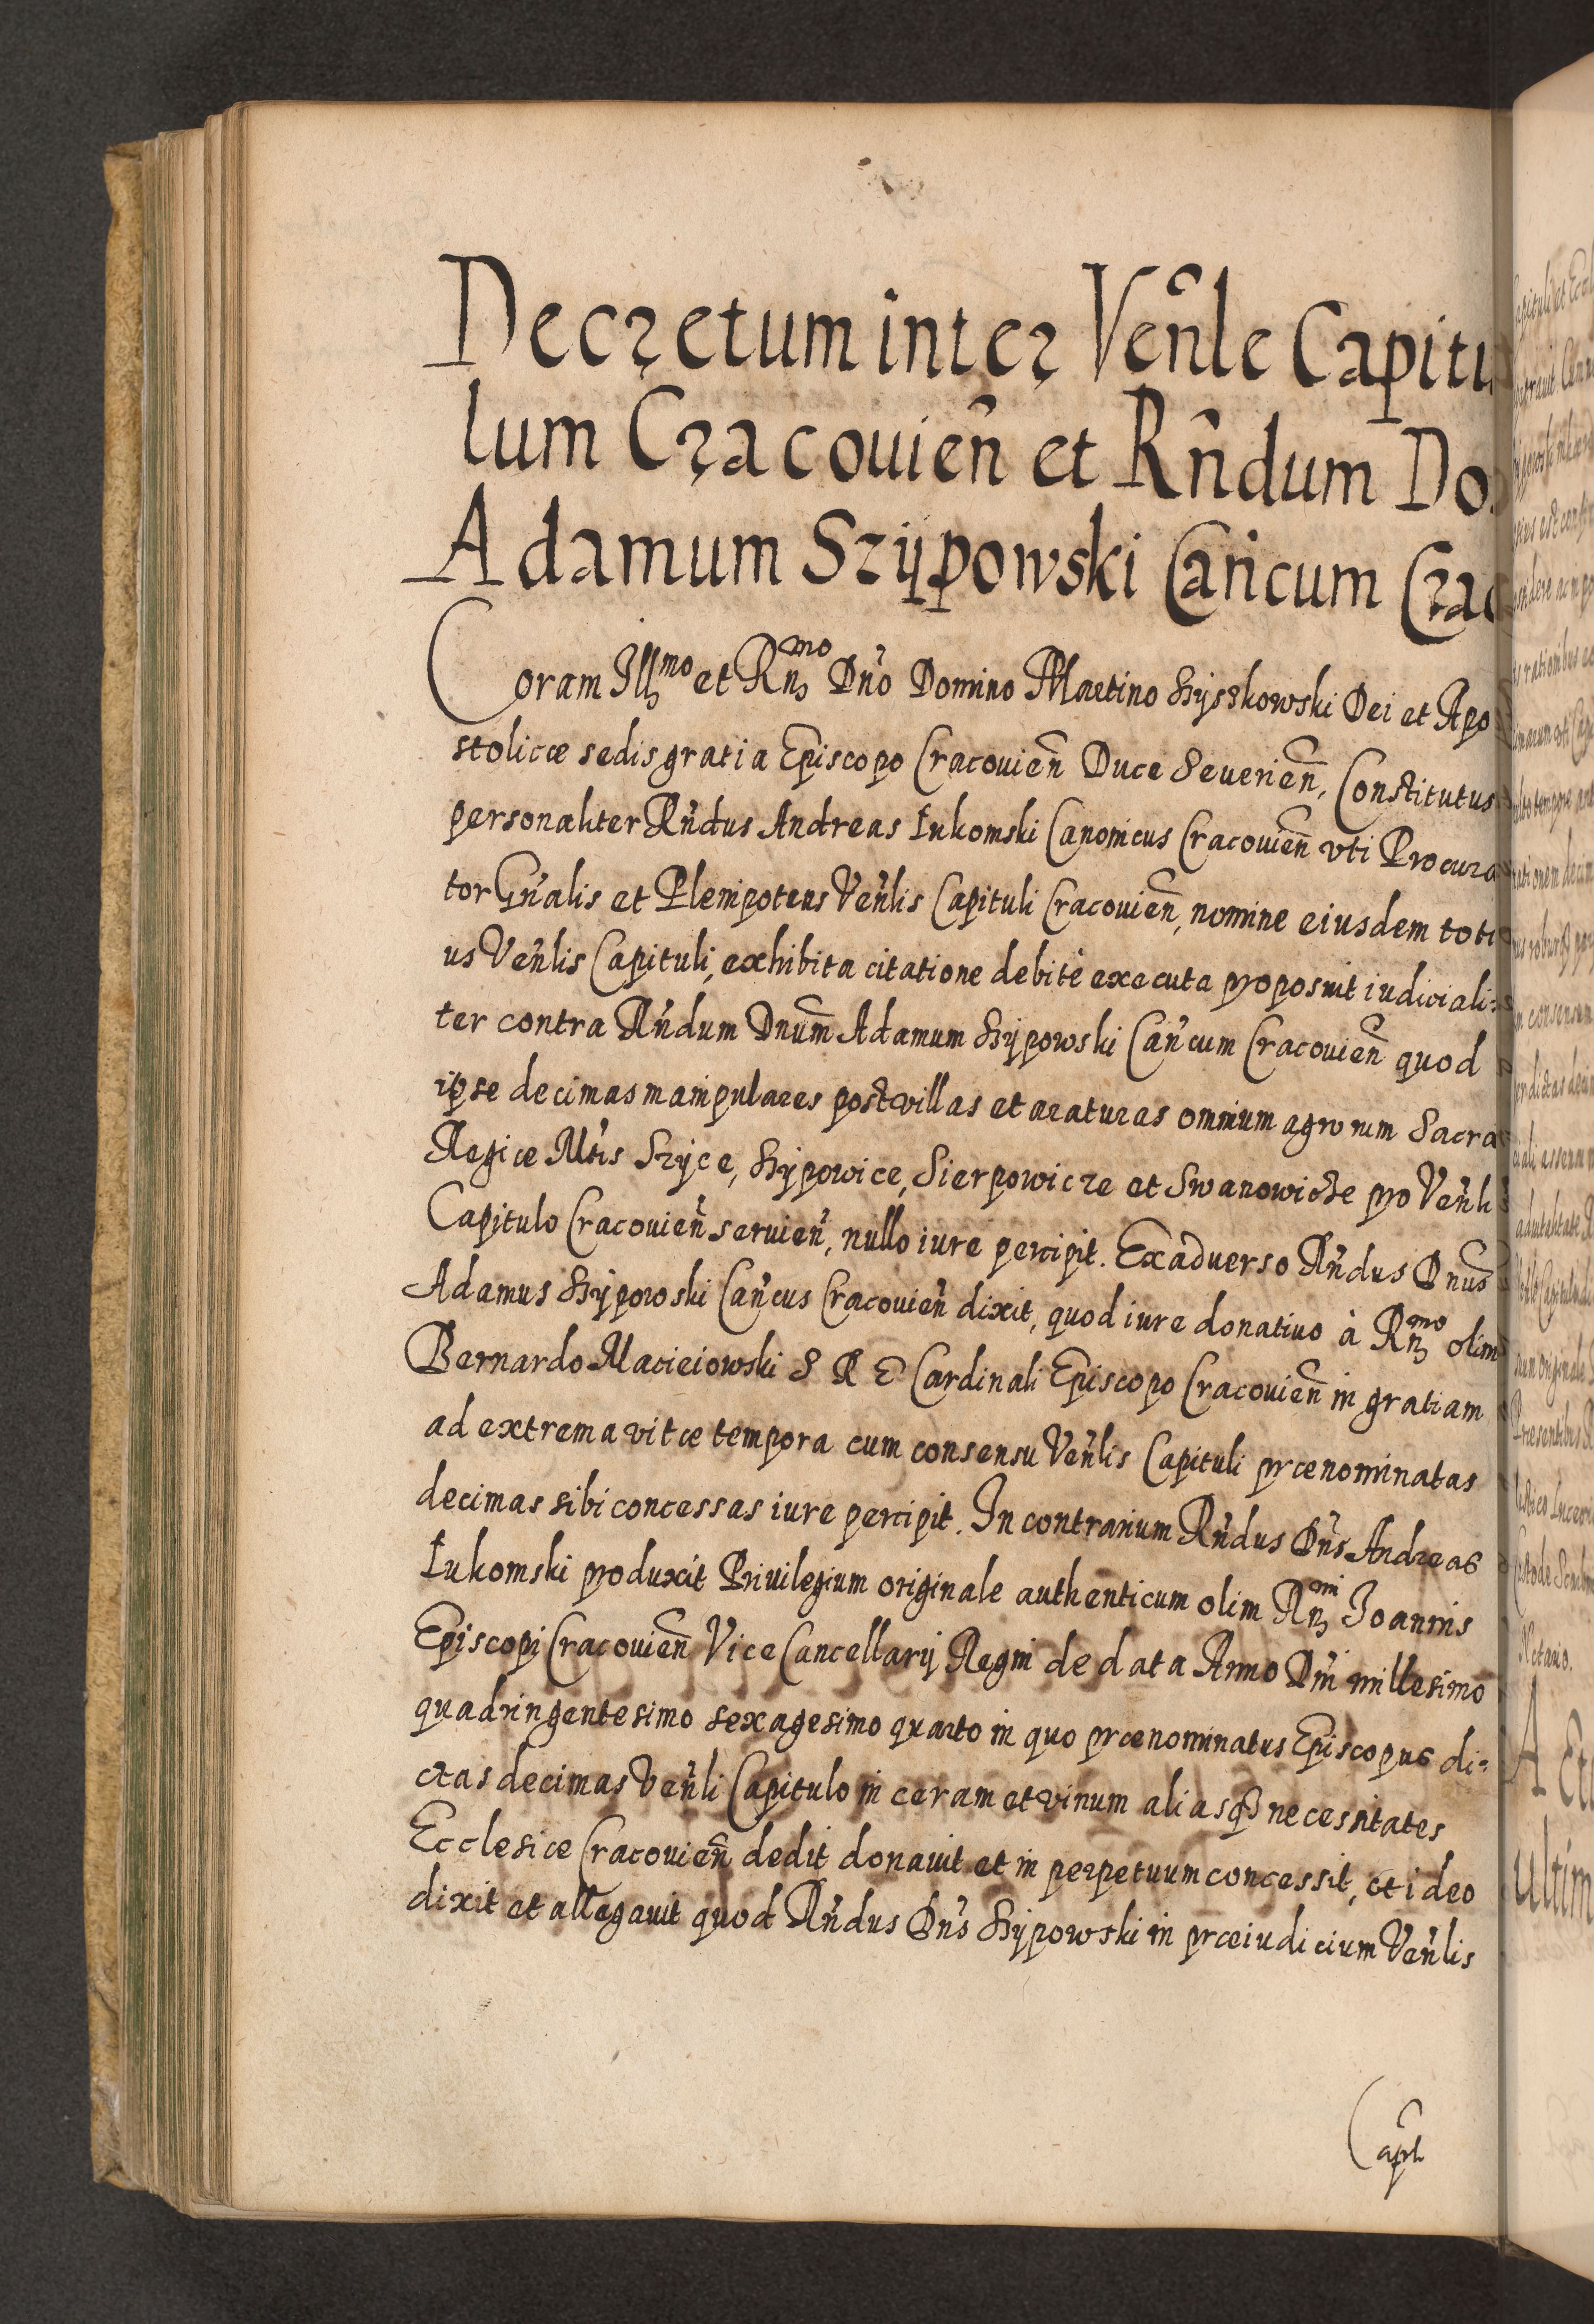 Decretum inter Ven̄le Capitu
lum Cracouien̄ et Rn̄dum Do
Adamum Szÿpowski Can̄cum Crac
Coram Illmo et Rn̄mo Dn̄o Domino Martino Szÿszkowski Dei et Apo
stolicæ sedis gratia Episcopo Cracouien̄ Duce Seuerien̄, Constitutus
personaliter Rn̄dus Andreas Łukomski Canonicus Cracouien̄ vti Procura
tor Gn̄alis et Plenipotens Ven̄lis Capituli Cracouien̄, nomine eiusdem toti
us Ven̄lis Capituli, exhibita citatione debitè executa proposuit iudiciali:
ter contra Rn̄dum Dnūm Adamum Szÿpowski Can̄cum Cracouien̄ quod
ipse decimas manipulares post villas et araturas omnium agrorum Sacra
Regiæ Mt̄is Szÿce, Szÿpowice, Sierpowicze et Swanowicze pro Ven̄li
Capitulo Cracouien̄ seruien̄, nullo iure percipit. Ex aduerso Rn̄dus Dnūs
Adamus Szÿpowski Can̄cus Cracouien̄ dixit, quod iure donatiuo à Rn̄mo olim
Bernardo Macieiowski S R E Cardinali Episcopo Cracouien̄ in gratiam
ad extrema vitæ tempora cum consensu Ven̄lis Capituli prænominatas
decimas sibi concessas iure percipit. In contrarium Rn̄dus Dn̄s Andreas
Łukomski produxit Priuilegium originale authenticum olim Rn̄mi Ioannis
Episcopi Cracouien̄ Vice Cancellarÿ Regni de data Anno Dn̄i millesimo
quadringentesimo sexagesimo quarto in quo prænominatus Episcopus di:
ctas decimas Ven̄li Capitulo in ceram et vinum aliasq3 necessitates
Ecclesiæ Cracouien̄ dedit donauit et in perpetuum concessit, et ideo
dixit et allegauit quod Rn̄dus Dn̄s Szÿpowski in præiudicium Ven̄lis
Capl